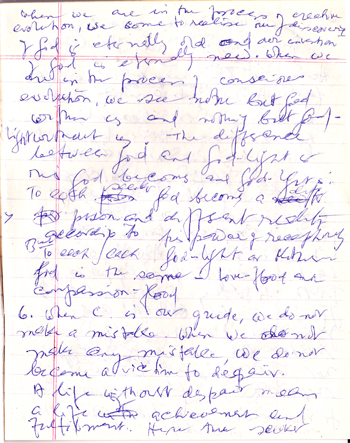 when we are in the process of creative
evolution, we come to realise our discovery
of god is eternally old and our invention
of god is eternally new. When we
are in the process of conscious
evolution, we see nothing but God
within us and nothing but God-
light without us. The difference
between God and god-light is
this God becomes and God-light is.
To each God becomes a
person and different results
according to his power of receptivity
But To each god-light as
God is the same – love-flood and
compassion-flood
6. When C. is our guide, we do not
make a mistake. When we do not
make any mistake, we do not
become a victim to despair.
A life without despair means
a life with achievement and
fulfilment. Here the seeker